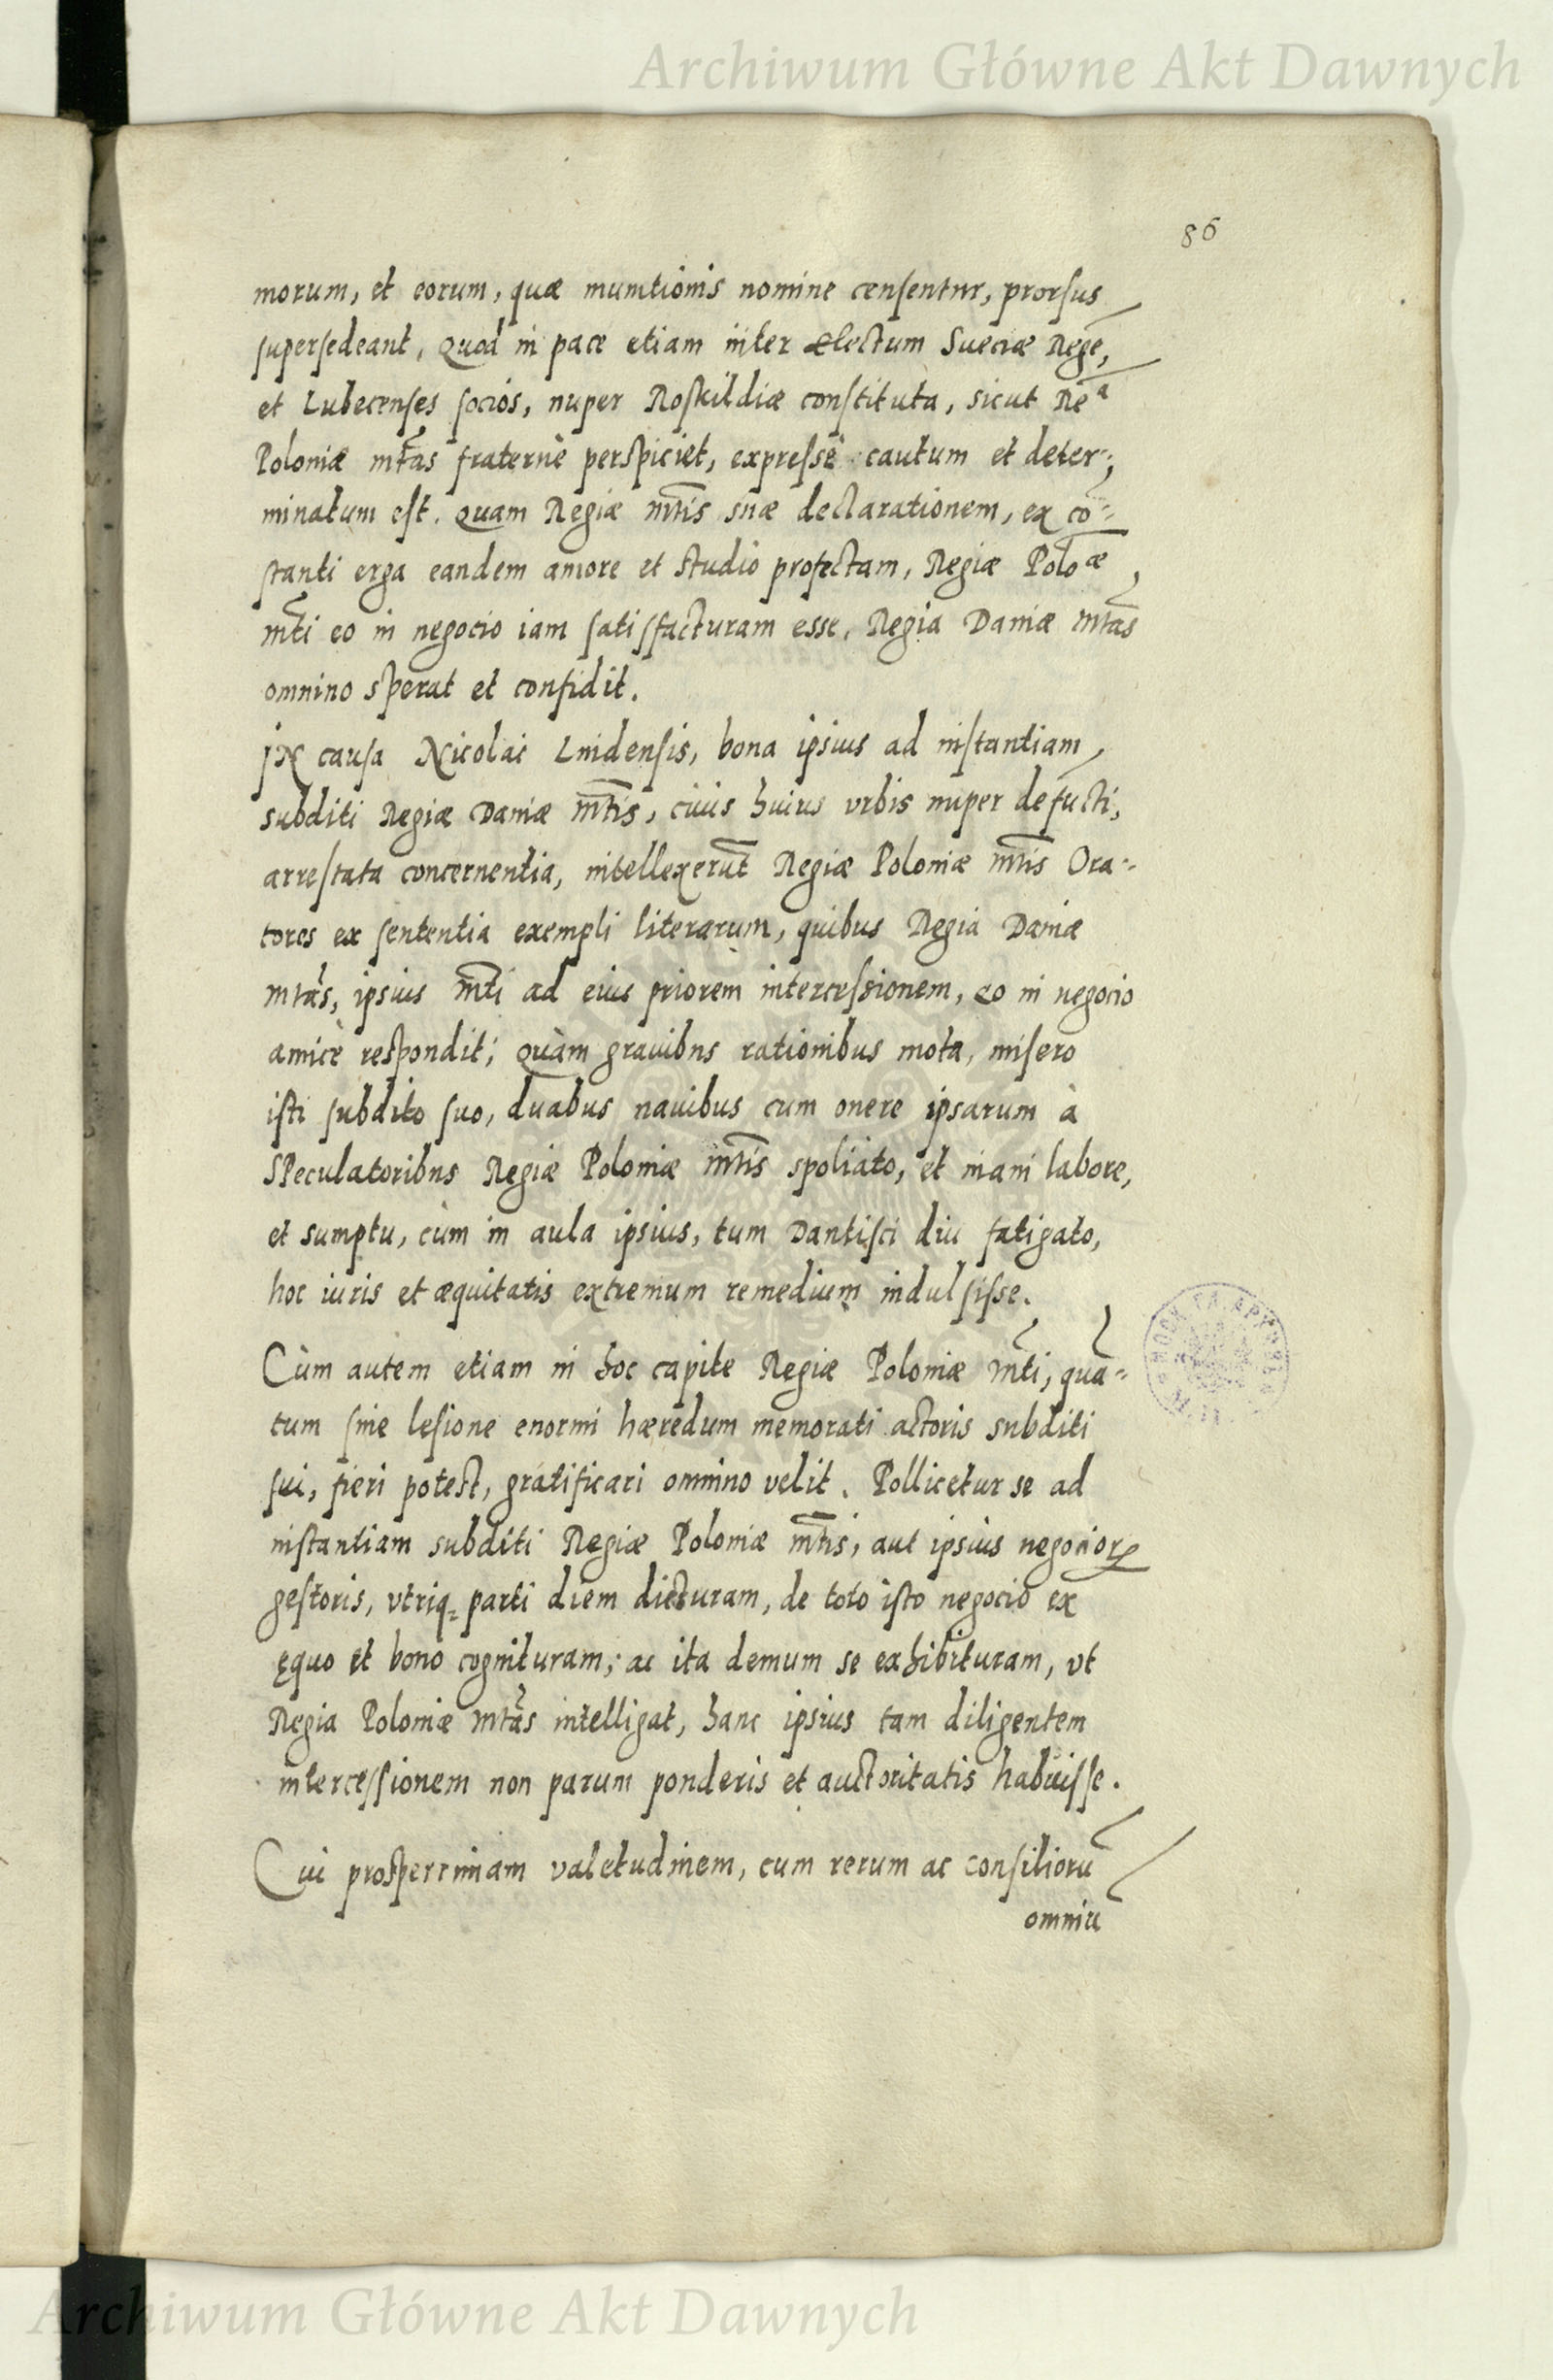 Archiwum Główne Akt Dawnych
86
morum, et eorum, quæ munitionis nomine censentur, prorsus
supersedeant, Quod in pace etiam inter Electum Sueciæ Regē,
et Lubecenses socios, nuper Roskildiæ constituta, sicut Reᵃ
Poloniæ mt̃as fraternè perspiciet, expressè cautum et deter=
minatum est. Quam Regiæ mt̃is suæ declarationem, ex cō=
stanti erga eandem amore et studio profectam, Regiæ Poloᵃᵉ
mt̃i eo in negocio iam satisfacturam esse, Regia Daniæ mt̃as
omnino sperat et confidit.
IN causa Nicolai Luidensis, bona ipsius ad instantiam
subditi Regiæ Daniæ mt̃is, ciuis huius vrbis nuper defucti,
arrestata concernentia, intellexerūt Regiæ Poloniæ mt̃is Ora=
tores ex sententia exempli literarum, quibus Regia Daniæ
mt̃as, ipsius mt̃i ad eius priorem intercessionem, eo in negocio
amicè respondit; Quàm grauibus rationibus mota, misero
isti subdito suo, duabus nauibus cum onere ipsarum à
SPeculatoribus Regiæ Poloniæ mt̃is spoliato, et inani labore,
et sumptu, cùm in aula ipsius, tum Dantisci diu fatigato,
hoc iuris et æquitatis extremum remedium indulsisse.
Cùm autem etiam in hoc capite Regiæ Poloniæ mt̃i, quā=
tum sine lesione enormi hæredum memorati actoris subditi
sui, fieri potest, gratificari omnino velit. Pollicetur se ad
instantiam subditi Regiæ Poloniæ mt̃is, aut ipsius negociorꝝ
gestoris, vtriq; parti diem dicturam, de toto isto negocio ex
ęquo et bono cognituram, ac ita demum se exhibituram, vt
Regia Poloniæ mt̃as intelligat, hanc ipsius tam diligentem
intercessionem non parum ponderis et auctoritatis habuisse.
Cui prosperrimam valetudinem, cum rerum ac consiliorū
omniū
Archiwum Główne Akt Dawnych